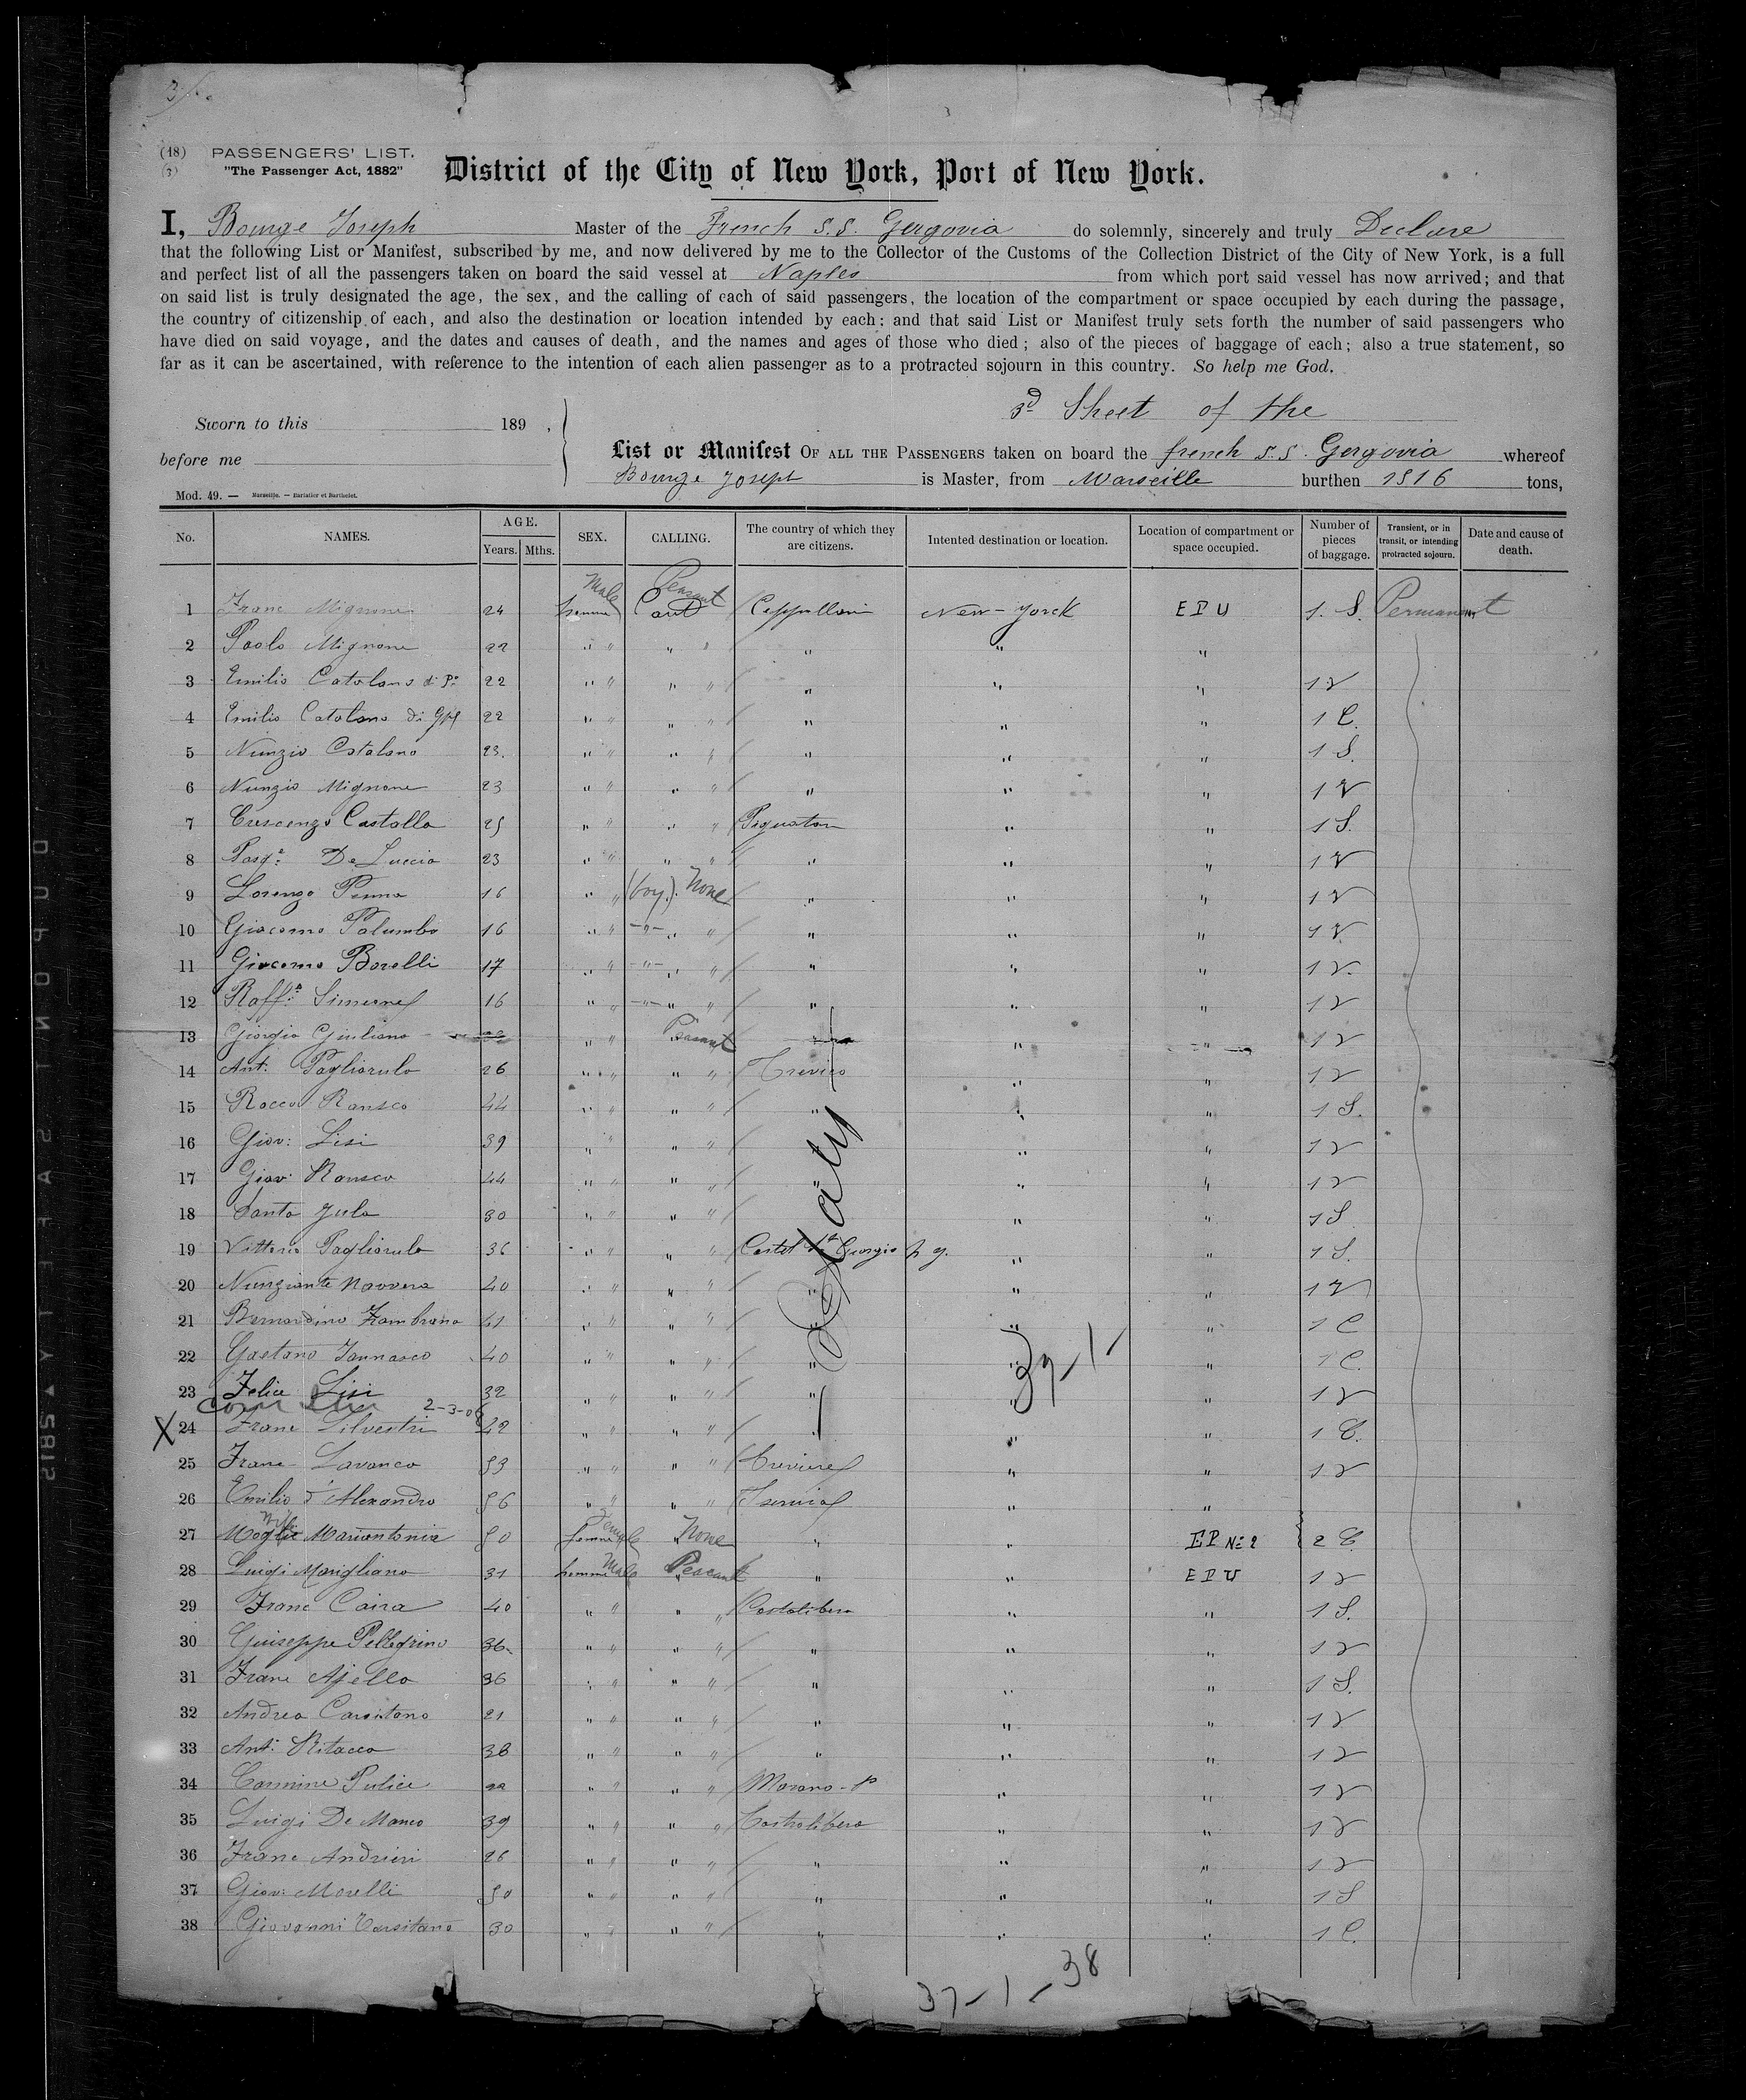 (18) PASSENGERS' LIST.
(3) "The Passenger Act, 1882"
District of the City of New York, Port of New York.
I, Bounge Joseph Master of the French S.S. Gergovia do solemnly, sincerely and truly Declare
that the following List or Manifest, subscribed by me, and now delivered by me to the Collector of the Customs of the Collection District of the City of New York, is a full
and perfect list of all the passengers taken on board the said vessel at Naples from which port said vessel has now arrived; and that
on said list is truly designated the age, the sex, and the calling of each of said passengers, the location of the compartment or space occupied by each during the passage,
the country of citizenship of each, and also the destination or location intended by each; and that said List or Manifest truly sets forth the number of said passengers who
have died on said voyage, and the dates and causes of death, and the names and ages of those who died; also of the pieces of baggage of each; also a true statement, so
far as it can be ascertained, with reference to the intention of each alien passenger as to a protracted sojourn in this country. So help me God.
3d Sheet of the
Sworn to this 189 ,
List or Manifest OF ALL THE PASSENGERS taken on board the french S.S. Gergovia whereof
before me
Bounge Joseph is Master, from Marseille burthen 1816 tons,
Mod. 49. — Marseille. — Barlatier et Barthelet.
No. NAMES. AGE. Years. Mths. SEX. CALLING. The country of which they are citizens. Intented destination or location. Location of compartment or space occupied. Number of pieces of baggage. Transient, or in transit, or intending protracted sojourn. Date and cause of death.
Male Peasant
1 Franc Mignone 24 homme New-Yorck E P U 1. S. Permanent
2 Paolo Mignone 22 " " " " " " "
3 Emilio Catalano di Po 22 " " " " " " " 1 V
4 Emilio Catalano di Gpe 22 " " " " " " " 1 C.
5 Nunzio Catalano 23. " " " " " " " 1 S.
6 Nunzio Mignone 23 " " " " " " " 1 V
7 Crescenzo Castalla 25 " " " " Pignatan " " 1 S.
8 Pasqe De Luccia 23 " " " " " " " 1 V
9 Lorenzo Penna 16 " " (boy). None " " " 1 V
10 Giacomo Palumbo 16 " " -"- " " " " " 1 V
11 Giacomo Borelli 17 " " -"- " " " " " 1 V.
12 Raffe Simeone 16 " " -"- " " " " " 1 V
13 Giorgio Giuliano " " Peasant " " 1 V
14 Ant: Pagliarulo 26 " " " " Trevico " " 1 V
15 Rocco Ransco 44 " " " " " " " 1 S.
16 Giov: Lisi 39 " " " " " " 1 V
17 Giov: Ransco 44 " " " " " " " 1 V
18 Santo Jula 30 " " " " " " 1 S
19 Vittorio Pagliarulo 36 " " " " Castel Giorgio " " 1 S.
20 Nunziante Novvera 40 " " " " " " " 1 V
21 Bernardino Zambrano 41 " " " " " " " 1 C
22 Gaetano Iannasco 40 " " " " " " " 1 C.
Italy
37-1-
23 Felice Lisi 32 " " " " " " " 1 V
2-3-06
X 24 Franc Silvestri 42 " " " " " " 1 C.
25 Franc Lavanca 53 " " " " " " 1 V
26 Emilio d'Alexandro 56 " " " " Isernia " "
Wife Female
27 Moglie Mariantonia 50 femme " None " " E P No 2 2 C.
28 Luigi Marigliano 31 homme Male " Peasant " " E P U 1 V
29 Franc Caira 40 " " " " Castolibero " " 1 S.
30 Guiseppe Pellegrino 36 " " " " " " " 1 V
31 Franc Ajello 36 " " " " " " " 1 S.
32 Andrea Carsitano 21 " " " " " " " 1 V
33 Ant: Ritacco 38 " " " " " " " 1 V
34 Carmine Pulice 22 " " " " Marano-P " " 1 V
35 Luigi De Marco 39 " " " " Castrolibero " " 1 V
36 Franc Andrieri 26 " " " " " " " 1 V
37 Giov: Morelli 50 " " " " " " " 1 S
38 Giovanni Carsitano 30 " " " " " " " 1 C.
37-1-38